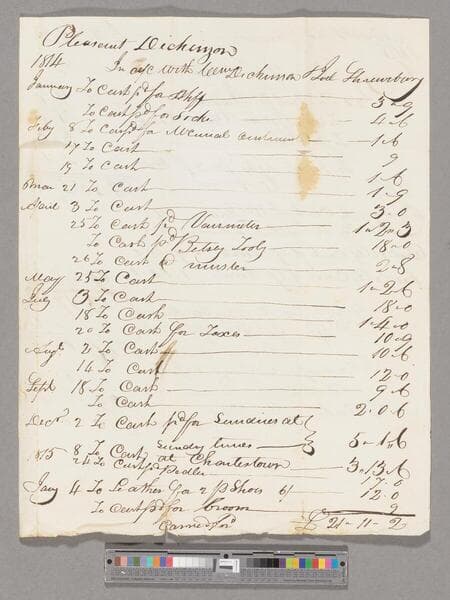 Pleasant Dickinson
1814 In a/c with Dickinson & Joel Shrewsbury
January To Cash pd for 5 " 9
To Cash pd for Socks 4 " 6
Feby 8 To Cash pd for 1 " 6
17 To Cash 9
19 To Cash 1 " 6
Mar 21 To Cash 1 " 9
April 3 To Cash 3 " 0
25 To Cash pd Vanmeter 1 " 2 " 3
To Cash pd Betsey Tooly 18 " 0
26 To Cash @ muster 2 " 8
May 25 To Cash 1 " 2 " 6
July 3 To Cash 18 " 0
18 To Cash 1 " 4 " 0
20 To Cash for Taxes 10 " 9
Augt 2 To Cash 10 " 6
14 To Cash 12 " 0
Sept 18 To Cash 9 " 6
To Cash 2 " 0 " 6
Decr 2 To Cash pd for Sundries at
Sundry times 5 " 1 " 6
8 To Cash at Charlestown 3 " 13 " 6
1815 24 To Cash pd Pedler 17 " 0
Jany 4 To Leather for 2 p Shoes 6/ 12 " 0
To Cash pd for broom 9
Carried for'd £ 21 - 11 - 2